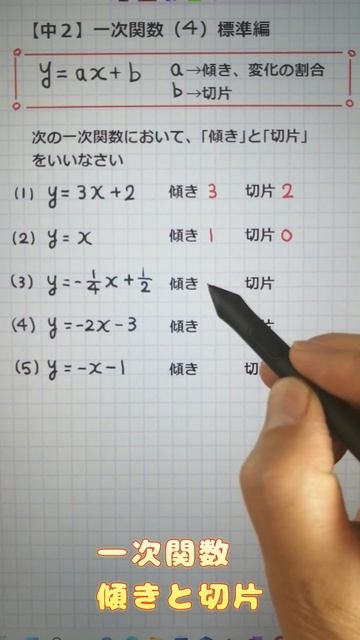 【中2】一次関数（4）標準編
y=ax+b a→傾き、変化の割合
b→切片
次の一次関数において、「傾き」と「切片」
をいいなさい
(1) y=3x+2 傾き 3 切片 2
(2) y=x 傾き 1 切片 0
(3) y=-1/4x+1/2 傾き 切片
(4) y=-2x-3 傾き 片
(5) y=-x-1 傾き 切
一次関数
傾きと切片